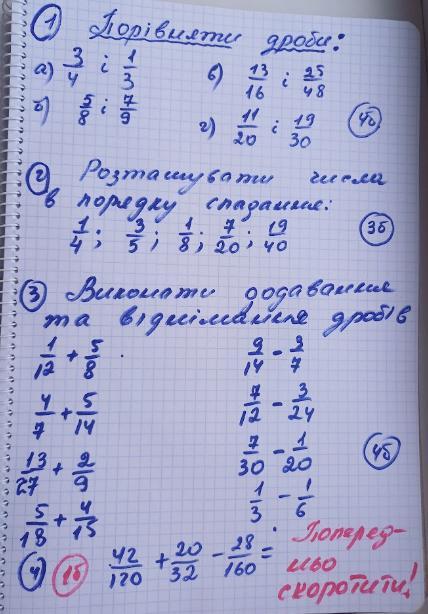 1 Порівняти дроби:
а) 3/4 і 1/3 в) 13/16 і 25/48
б) 5/8 і 7/9 г) 11/20 і 19/30 4б
2 Розташувати числа
в порядку спадання:
1/4; 3/5; 1/8; 7/20; 19/40 3б
3 Виконати додавання
та віднімання дробів
1/12 + 5/8 9/14 - 2/7
4/7 + 5/14 7/12 - 3/24
13/27 + 2/9 7/30 - 1/20 4б
5/18 + 4/15 1/3 - 1/6
4 1б 42/120 + 20/32 - 28/160 = Поперед-
ньо
скоротити!